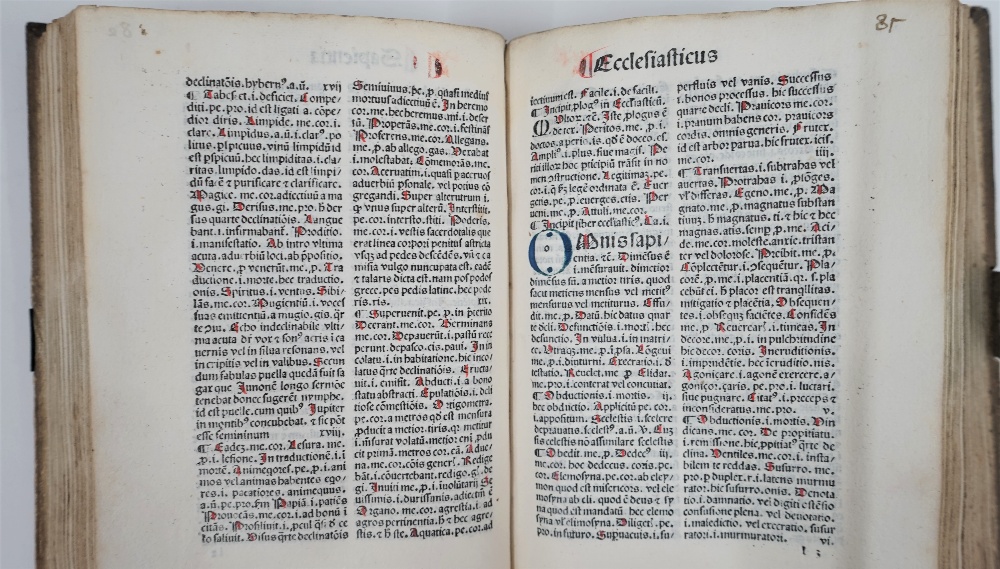 declinatōis. hybern⁹. a. ū. xvij
¶ Tabescet. i. deficiet. Compe/
diti. pe. pro. id est ligati a. cōpe/
dior diris. Limpide. me. cor. i.
clare. Limpidus. a. ū. i. clar⁹. po
litus. vnū. limpidū id
est pspicuū. hec limpiditas. i. cla/
ritas. limpido. das. id est limpi/
dū facē & purificare & clarificare.
Magice. me. cor. adiectiuū a ma
gus. gi. Derisus. me. pro. h̄ der
sus quarte declinatiōis. Langue
bant. i. infirmabant. Proditio.
i. manifestatio. Ab intro vltima
acuta. aduerbiū loci. ab p̄positio.
Venere. p venerūt. me. p. Tra
ductione. i. morte. hec traductio.
onis. Spiritus. i. ventus. Sibi/
lās. me. cor. Mugientiū. i. voces
suas emittentiū. a mugio. gis. q̄r
te Echo indeclinabile vlti/
ma acuta dr̄ vox & son⁹ aeris i ca
uernis vel in silua resonans. vel
in criptis vel in vallibus. Secun
dum fabulas puella quedā fuit sa
gax que Junonē longo sermōe
tenebat donec fugerēt nymphe.
id est puelle. cum quib⁹ Jupiter
in montib⁹ concubebat. & sic pōt
esse femininum xviij.
¶ Eadez. me. cor. Lesura. me.
p. i. lesione. In traductionē. i. i
mortē. Animeqores. pe. p. i. ani
mos vel animas habentes eqo/
res. i. pacatiores. animequus.
a. ū. pe. pro. fm Papiā. i. patiēs
Pronoās. me. cor. i. ad honū i
citās. Prosiliuit. i. pcul q̄si de
lo saliuit. Visus q̄rte declinatōis
Semiuiuus. pe. p. quasi medius
mortuus adiectiuū ē. In heremo
cor. me. hec heremus. mi. i. deser
tū. Properās. me. cor. i. festinās
Proferens. me. cor. Allegans.
me. p. ab allego. gas. Vexabat
i. molestabat. Cōmemorās. me.
cor. Aceruatim. i. quasi p aceruos
aduerbiū psonale. vel potius cō
gregandi. Super alterutrum. i.
q̄ vnus super alterū. Interstitit.
pe. cor. intersto. stiti. Poderis.
me. cor. i. vestis sacerdotalis que
erat linea corpori penitus astricta
vsq̄ ad pedes descēdēs. vn̄ & ca
misia vulgo nuncupata est. eadē
& talaris dicta est. nam pos podos
grece. pes pedis latine. hec pode
ris. ris. xix.
¶ Superuenit. pe. p. in p̄terito
Deerant. me. cor. Germinans
me. cor. Depauerūt. i. pastū rece
perunt. depasco. cis. paui. In in
colatu. i. in habitatione. hic inco/
latus q̄rte declinatiōis. Eructa/
uit. i. emisit. Abducti. i. a bono
statu abstracti. Epulatiōis. i. deli
tiose cōmestiōis. Ortigometra.
pe. cor. a metros qd̄ est mensura
pducit a metior. tiris. q̄r metitur
i. mēsurat volatū. metior eni pdu
cit primā. metros cor. cā. Adue/
na. me. cor. cōis gener̄. Redige
bāt. i. cōuertebant. redigo. gi. de
gi. Inuiti me. p. i. inolūtarij Se
uissimis. i. durissimis. adiectiū ē
Organo. me. cor. agrestia. i. ad
agros pertinentia. h̄ & hec agre/
stis. & h̄ ste. Aquatica. pe. cor. ad
Ecclesiasticus
85
iectiuum est. Facile. i. de facili.
¶ Incipit plog⁹ in Ecclesiasticū.
Multor. &c. Iste plogus ē
de ter. Peritos. me. p. i.
doctos. a peris. is. qd̄ ē doceo. es.
Ampli⁹. i. plus. fiue magis. Pe
ritiillor. hoc pricipiū trāsit in no
men ostructione. Legitimaz. pe.
cor. i. q̄ fm legē ordinata ē. Euer
getis. pe. p. euerges. etis. Per
ueni. me. p. Attuli. me. cor.
¶ Incipit liber ecclesiastic⁹. Ca. i.
OMnis sapi/
entia. &c. Dimēsus ē
i. mēsurauit. dimetior
dimēsus sū. a metior tiris. quod
facit metiens mensus vel metit⁹
mensurus vel metiturus. Effu/
dit. me. p. Datū. hic datus quar
te decli. Defunctiōis. i. mort. hec
defunctio. In vulua. i. in matri/
ce. Vtraqz. me. p. i. ipsa. Lōgeui
me. p. i. diuturni. Execratio. i. de
testatio. Reuelet. me p Elidar.
me. pro. i. conterat vel concutiat.
¶ Obductionis. i. mortis. ij.
hec obductio. Applicitū pe. cor.
i. appositum. Scelestis. i. scelere
deprauatis. scelest⁹. a. ū. v. Cuz
sis celestis nō assimilare scelestis
¶ Obedit. me. p. Dedec⁹ iij.
me. cor. hoc dedecus. coris. pe.
cor. Elemosyna pe. cor. ab eley/
mon quod est misericors. vel ele
mosyna ab eli. quod ē deus & sy
na quod est mandatū hec elemo
syna vl̄ elimosyna. Diliget. pe.
pro. in futuro. Supuacuis. i. su/
perfluis vel vanis. Successus
i. honos processus. hic successus
quarte decli. Prauicors me. cor.
i. prauum habens cor. prauicors
cordis. omnis generis. Frutex.
id est arbor parua. hic frutex. icis.
me. cor. iiij.
¶ Transuertas. i. subtrahas vel
auertas. Protrahas i. plōges.
vl̄ differas. Egeno. me. p. Ma
gnato. me. p. magnatus substan
tiuum. h̄ magnatus. ti. & hic & hec
magnas. atis. semp. p. me. Aci/
de. me. cor. moleste. anxie. tristan
ter vel dolorose. Prohibit. me. p.
Cōplectētur. i. psequētur. Pla/
core. me. p. i. placentiā. qz. s. pla
cebūt ei. h̄ placor est tranqlitas.
mitigatio & placētia. Obsequen/
tes. i. obsequiū faciētes. Confidēs
me. p Reuereari. i. timeas. In
decore. me. p. i. in pulchritudine
hic decor. coris. Ineruditionis.
i. imprudētie. hec ineruditio. nis.
Agonicare. i. agonē exercere. a/
goniçor. çaris. pe. pro. i. luctari.
siue pugnare. Citat⁹. i. preceps &
inconsideratus. me. pro. v.
¶ Obductionis. i. mortis. Vin
dicans. me. cor. De propitiatu.
i. remissione. hic ppitiat⁹ q̄rte de
clina. Uentiles. me. cor. i. insta/
bilem te reddas. Susurro. me.
pro. p dupler. r. i. latens murmu
rator. hic susurro. onis. Denota
tio. i. damnatio. vel digiti ostēsio
confusione plena. vel denotatio.
i. maledictio. vel execratio. susur
ratori. i. murmuratori. vi.
l 3